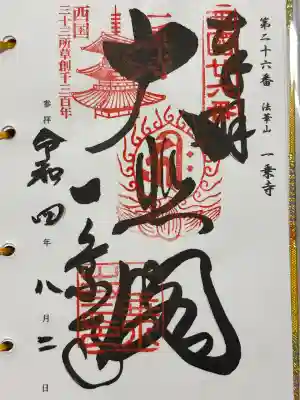 第二十六番 法華山 一乗寺
奉拝
大悲閣
一乗寺
西国
三十三所草創千三百年
参拝 令和四年八月二日